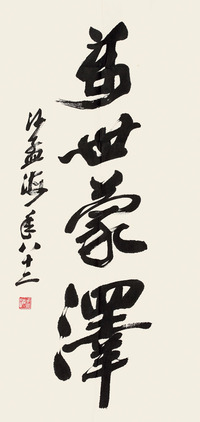 萬世蒙澤
沙孟海年八十三